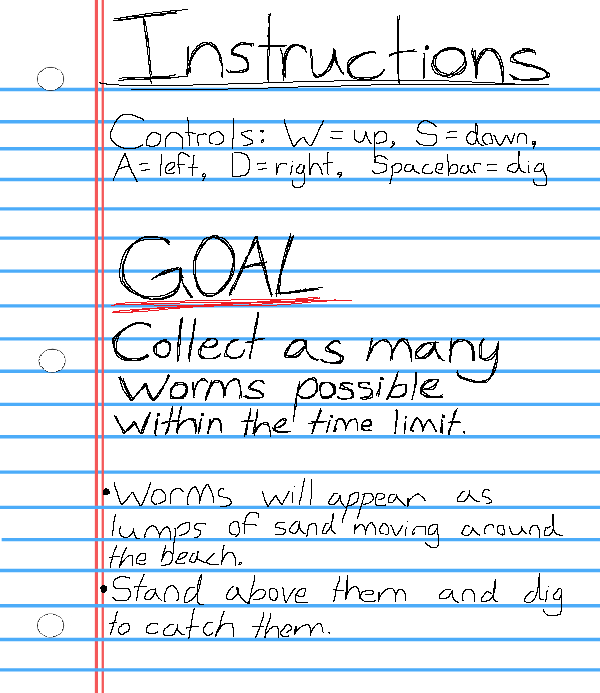 Instructions
Controls: W = up, S = down,
A = left, D = right, Spacebar = dig
GOAL
Collect as many
worms possible
within the time limit.
• Worms will appear as
lumps of sand moving around
the beach.
• Stand above them and dig
to catch them.